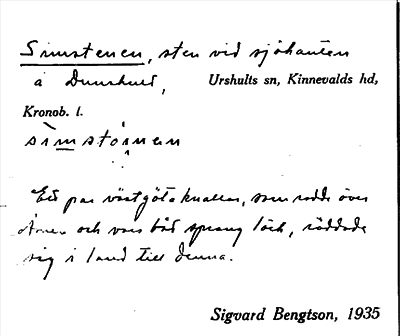 Simstenen, sten vid sjökanten
å Dunshult, Urshults sn, Kinnevalds hd,
Kronob. l.
simstóinen
Ett par västgötaknallar, som rodde över
Åsnen och vars båt sprang läck, räddade
sig i land till denna.
Sigvard Bengtson, 1935